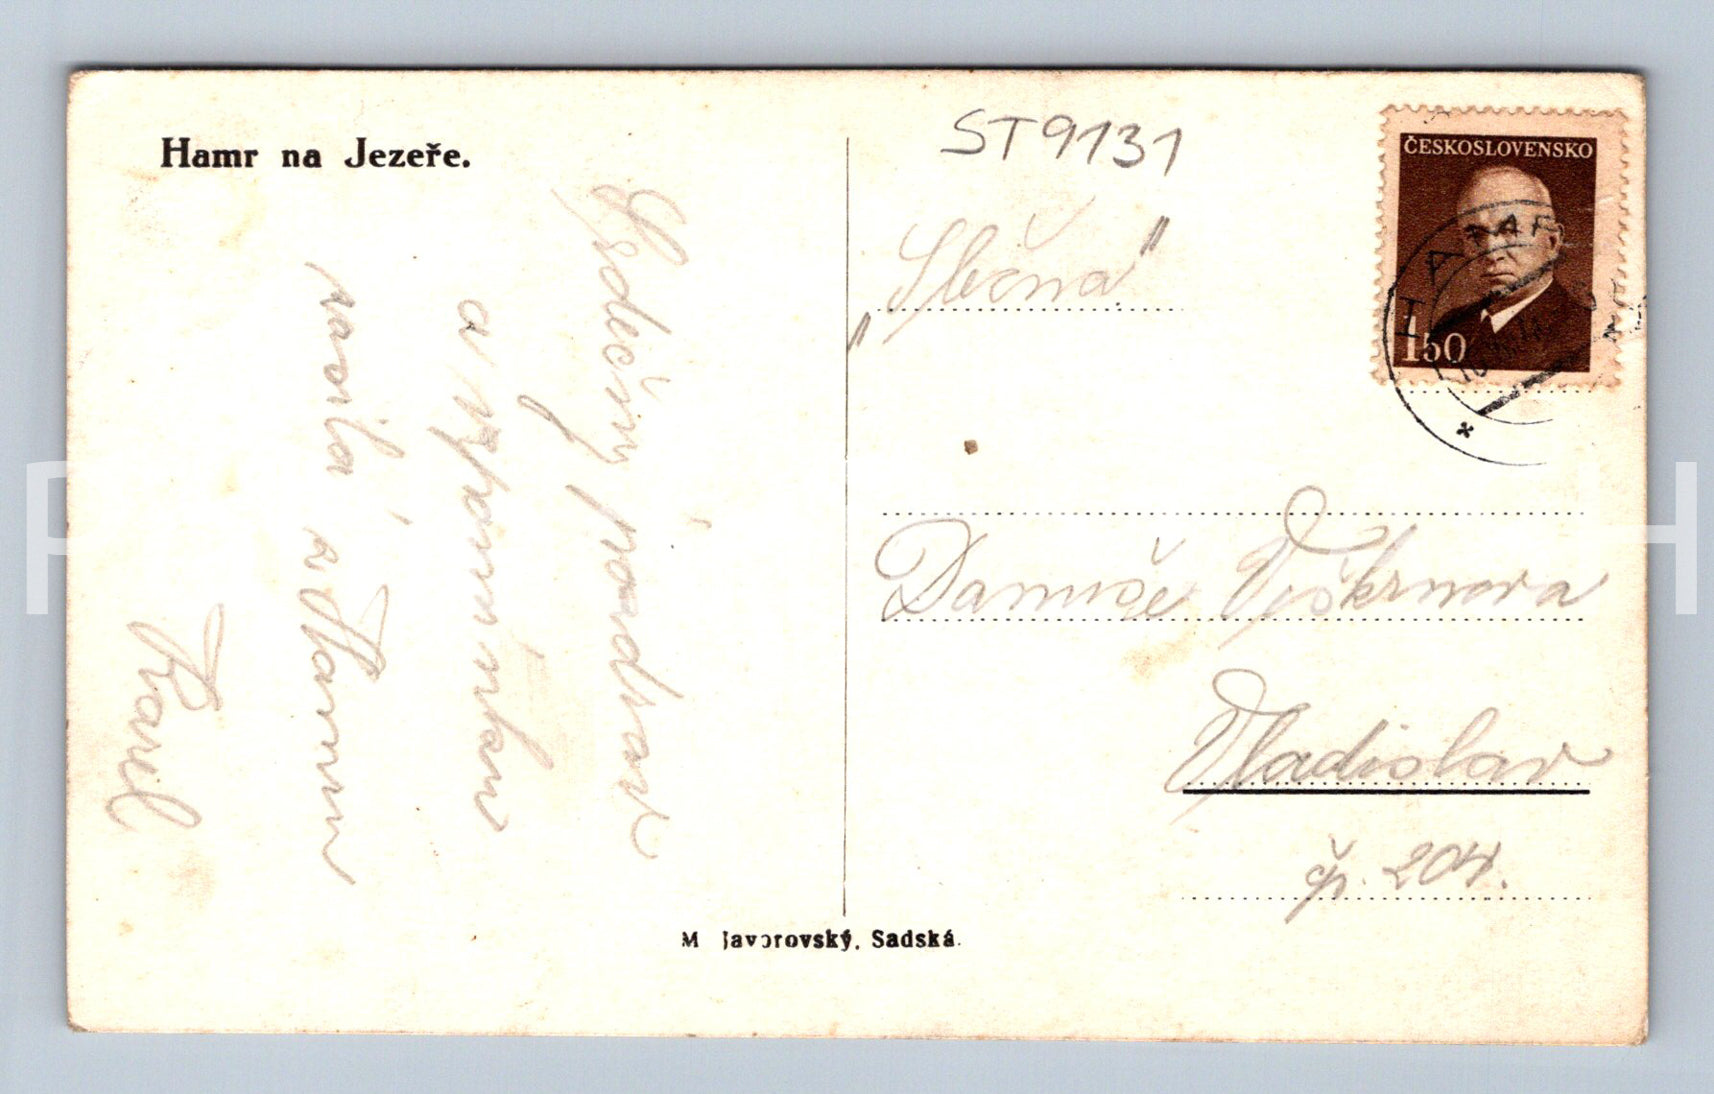 Hamr na Jezeře.
Srdečný pozdrav
a vzpomínku
posílá z Hamru
Karel
ST9131
ČESKOSLOVENSKO
1·50
HAMR
"Slečna"
Danuše
Vladislav
čp. 204.
M Javorovský, Sadská.